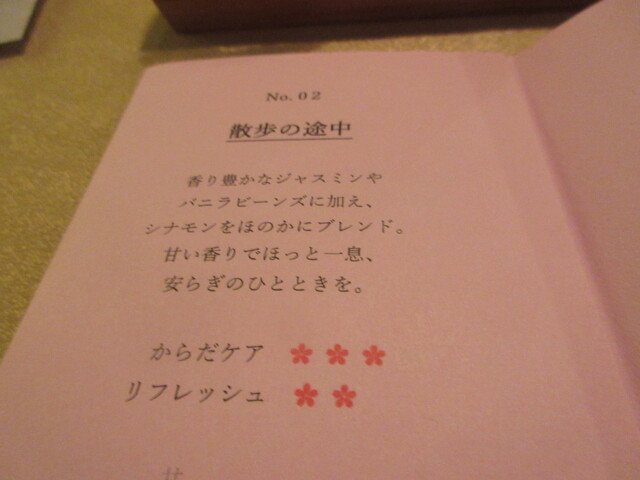 No. 02
散歩の途中
香り豊かなジャスミンや
バニラビーンズに加え、
シナモンをほのかにブレンド。
甘い香りでほっと一息、
安らぎのひとときを。
からだケア
リフレッシュ